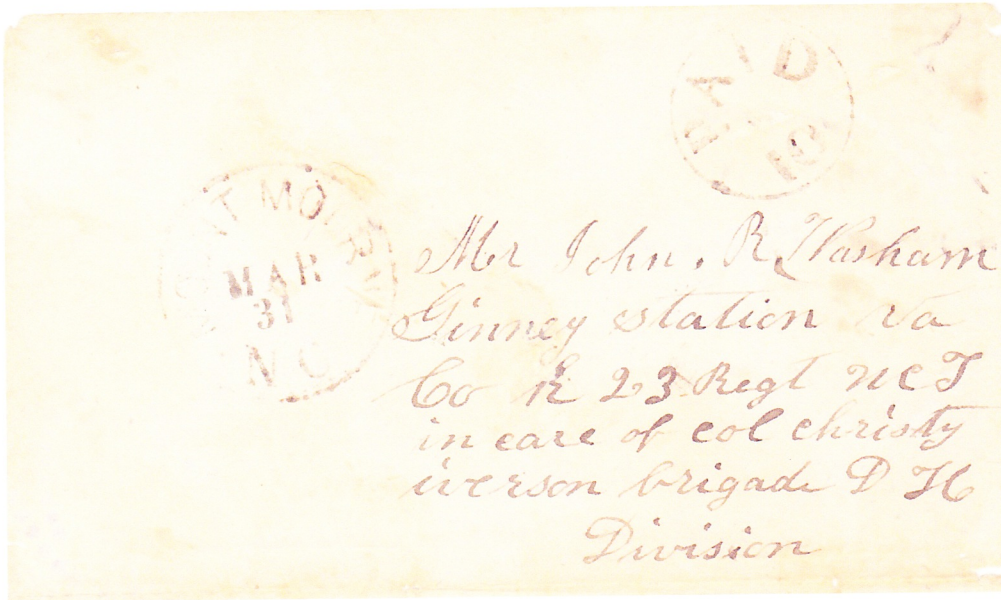 PAID
10
T MO
MAR
31
N C
Mr John. R, Washam
Ginney station va
Co E 23 Regt N C T
in care of col christy
iverson brigade D H
Division